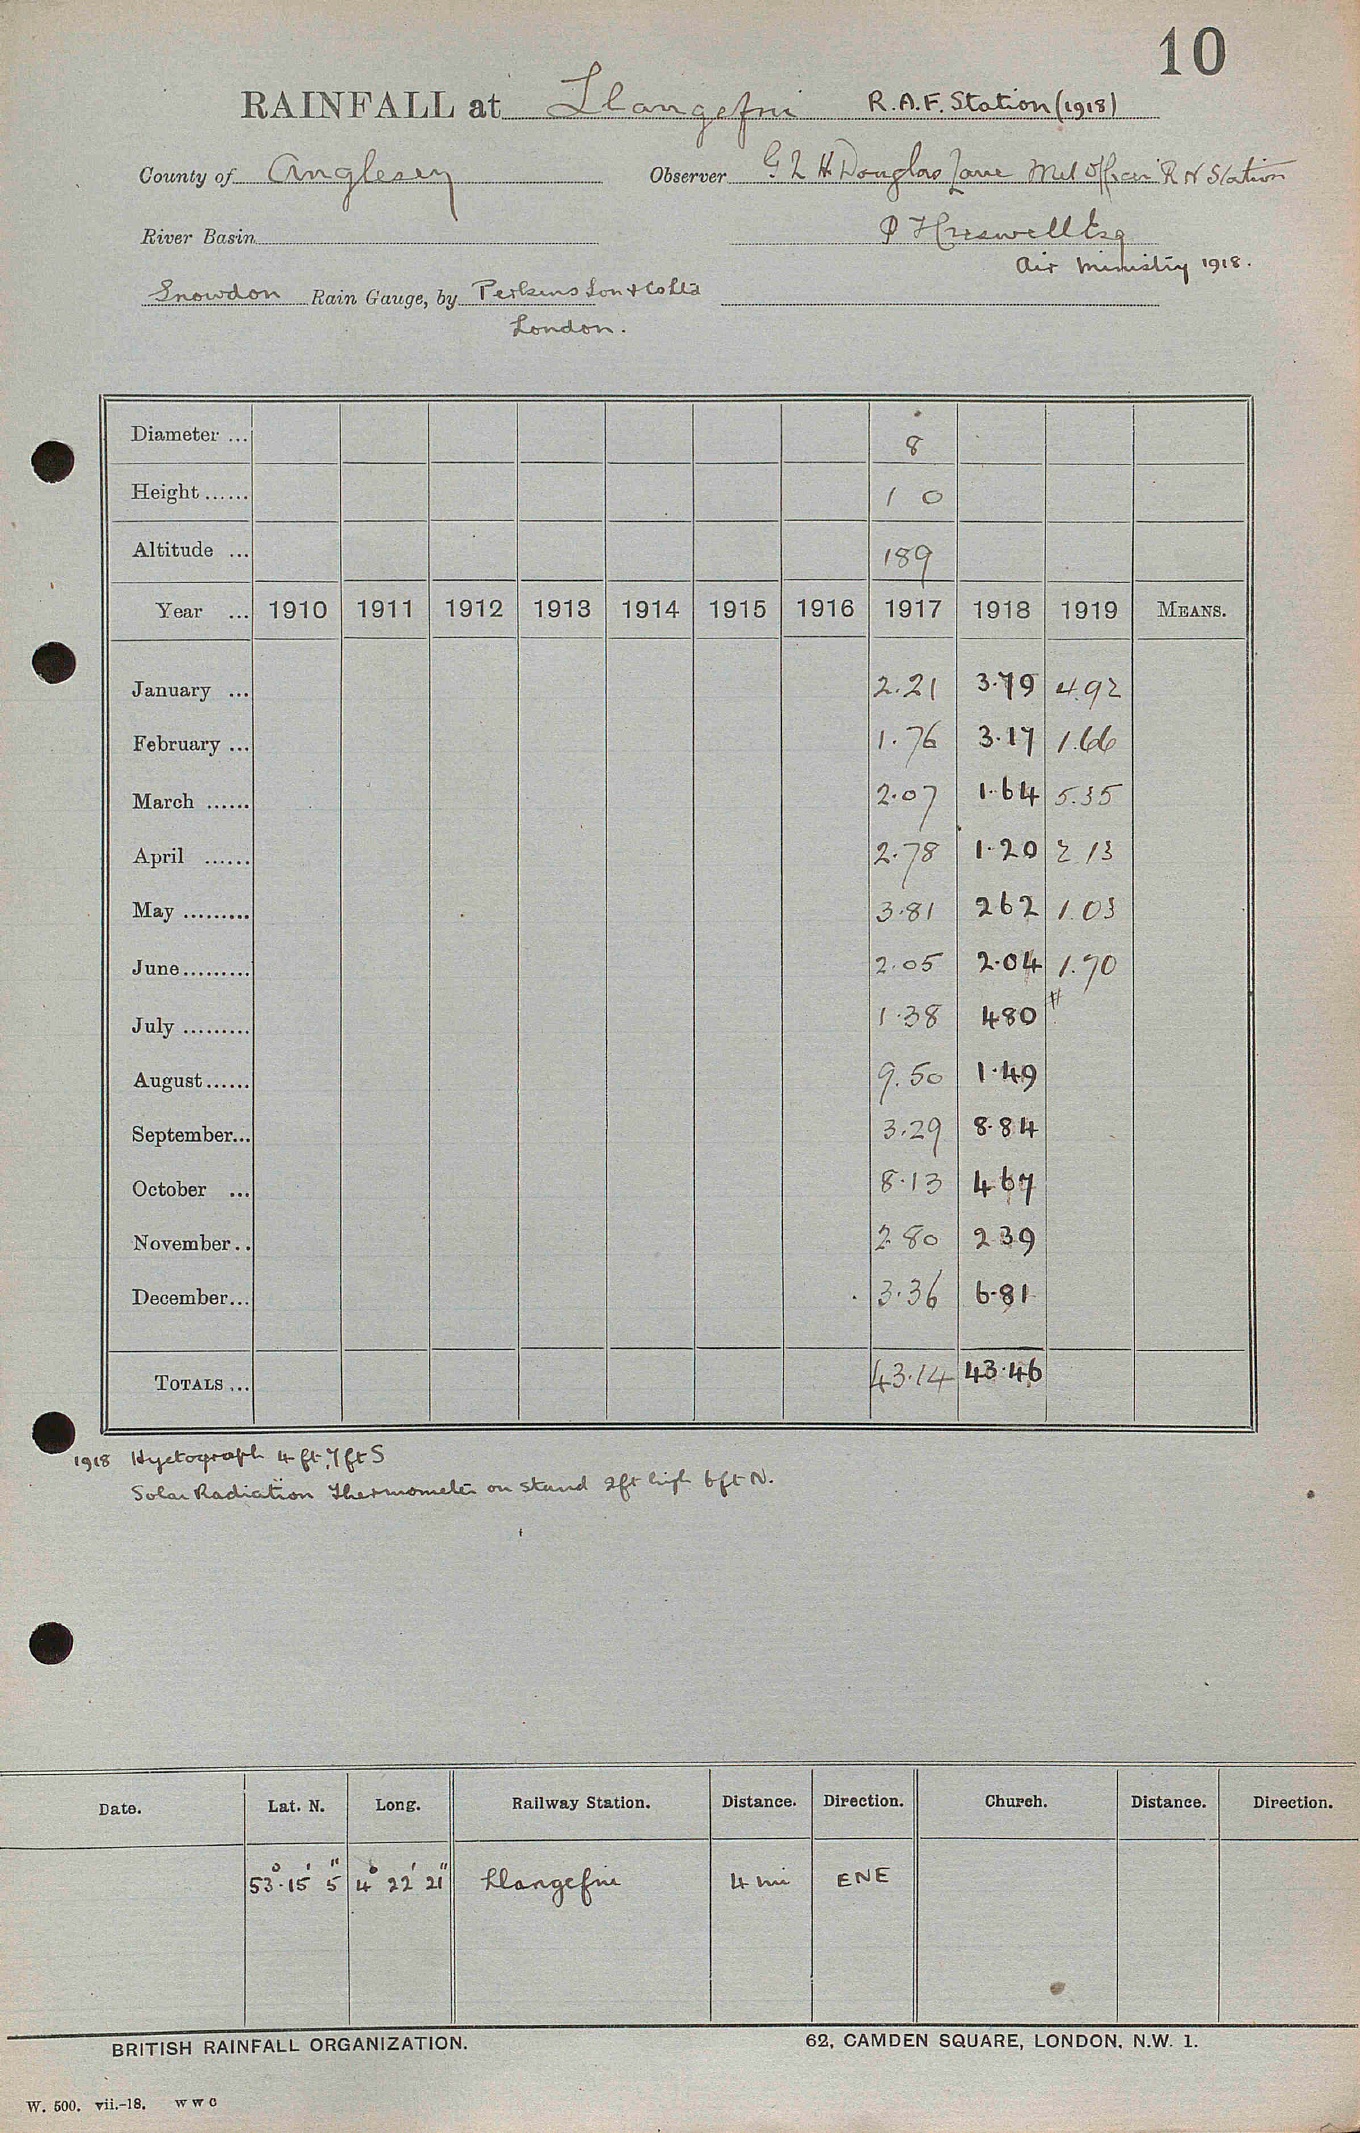 10
RAINFALL at Llangefni R.A.F. Station (1918)
County of Anglesey Observer G L H Douglas Lane Met Officer R N Station
River Basin P Esq
Air Ministry 1918.
Snowdon Rain Gauge, by Perkins Son & Co Ltd
London.
Diameter ... 8
Height ...... 1 0
Altitude ... 189
Year ... 1910 1911 1912 1913 1914 1915 1916 1917 1918 1919 MEANS.
January ... 2.21 3.79 4.92
February ... 1.76 3.17 1.66
March ...... 2.07 1.64 5.35
April ...... 2.78 1.20 2 13
May ......... 3.81 2 62 1.03
June ......... 2.05 2.04 1.70
July ......... 1.38 4 80 #
August ...... 9.50 1.49
September... 3.29 8.84
October ... 8.13 4 67
November .. 2 80 2 39
December... 3.36 6.81
TOTALS ... 43.14 43.46
1918 Hyetograph 4 ft, 7 ft S
Solar Radiation Thermometer on stand 2ft high 6 ft N.
Date. Lat. N. Long. Railway Station. Distance. Direction. Church. Distance. Direction.
53° 15' 5" 4° 22' 21" Llangefni 4 mi ENE
BRITISH RAINFALL ORGANIZATION. 62, CAMDEN SQUARE, LONDON, N.W. 1.
W. 500. vii.-18. W W C